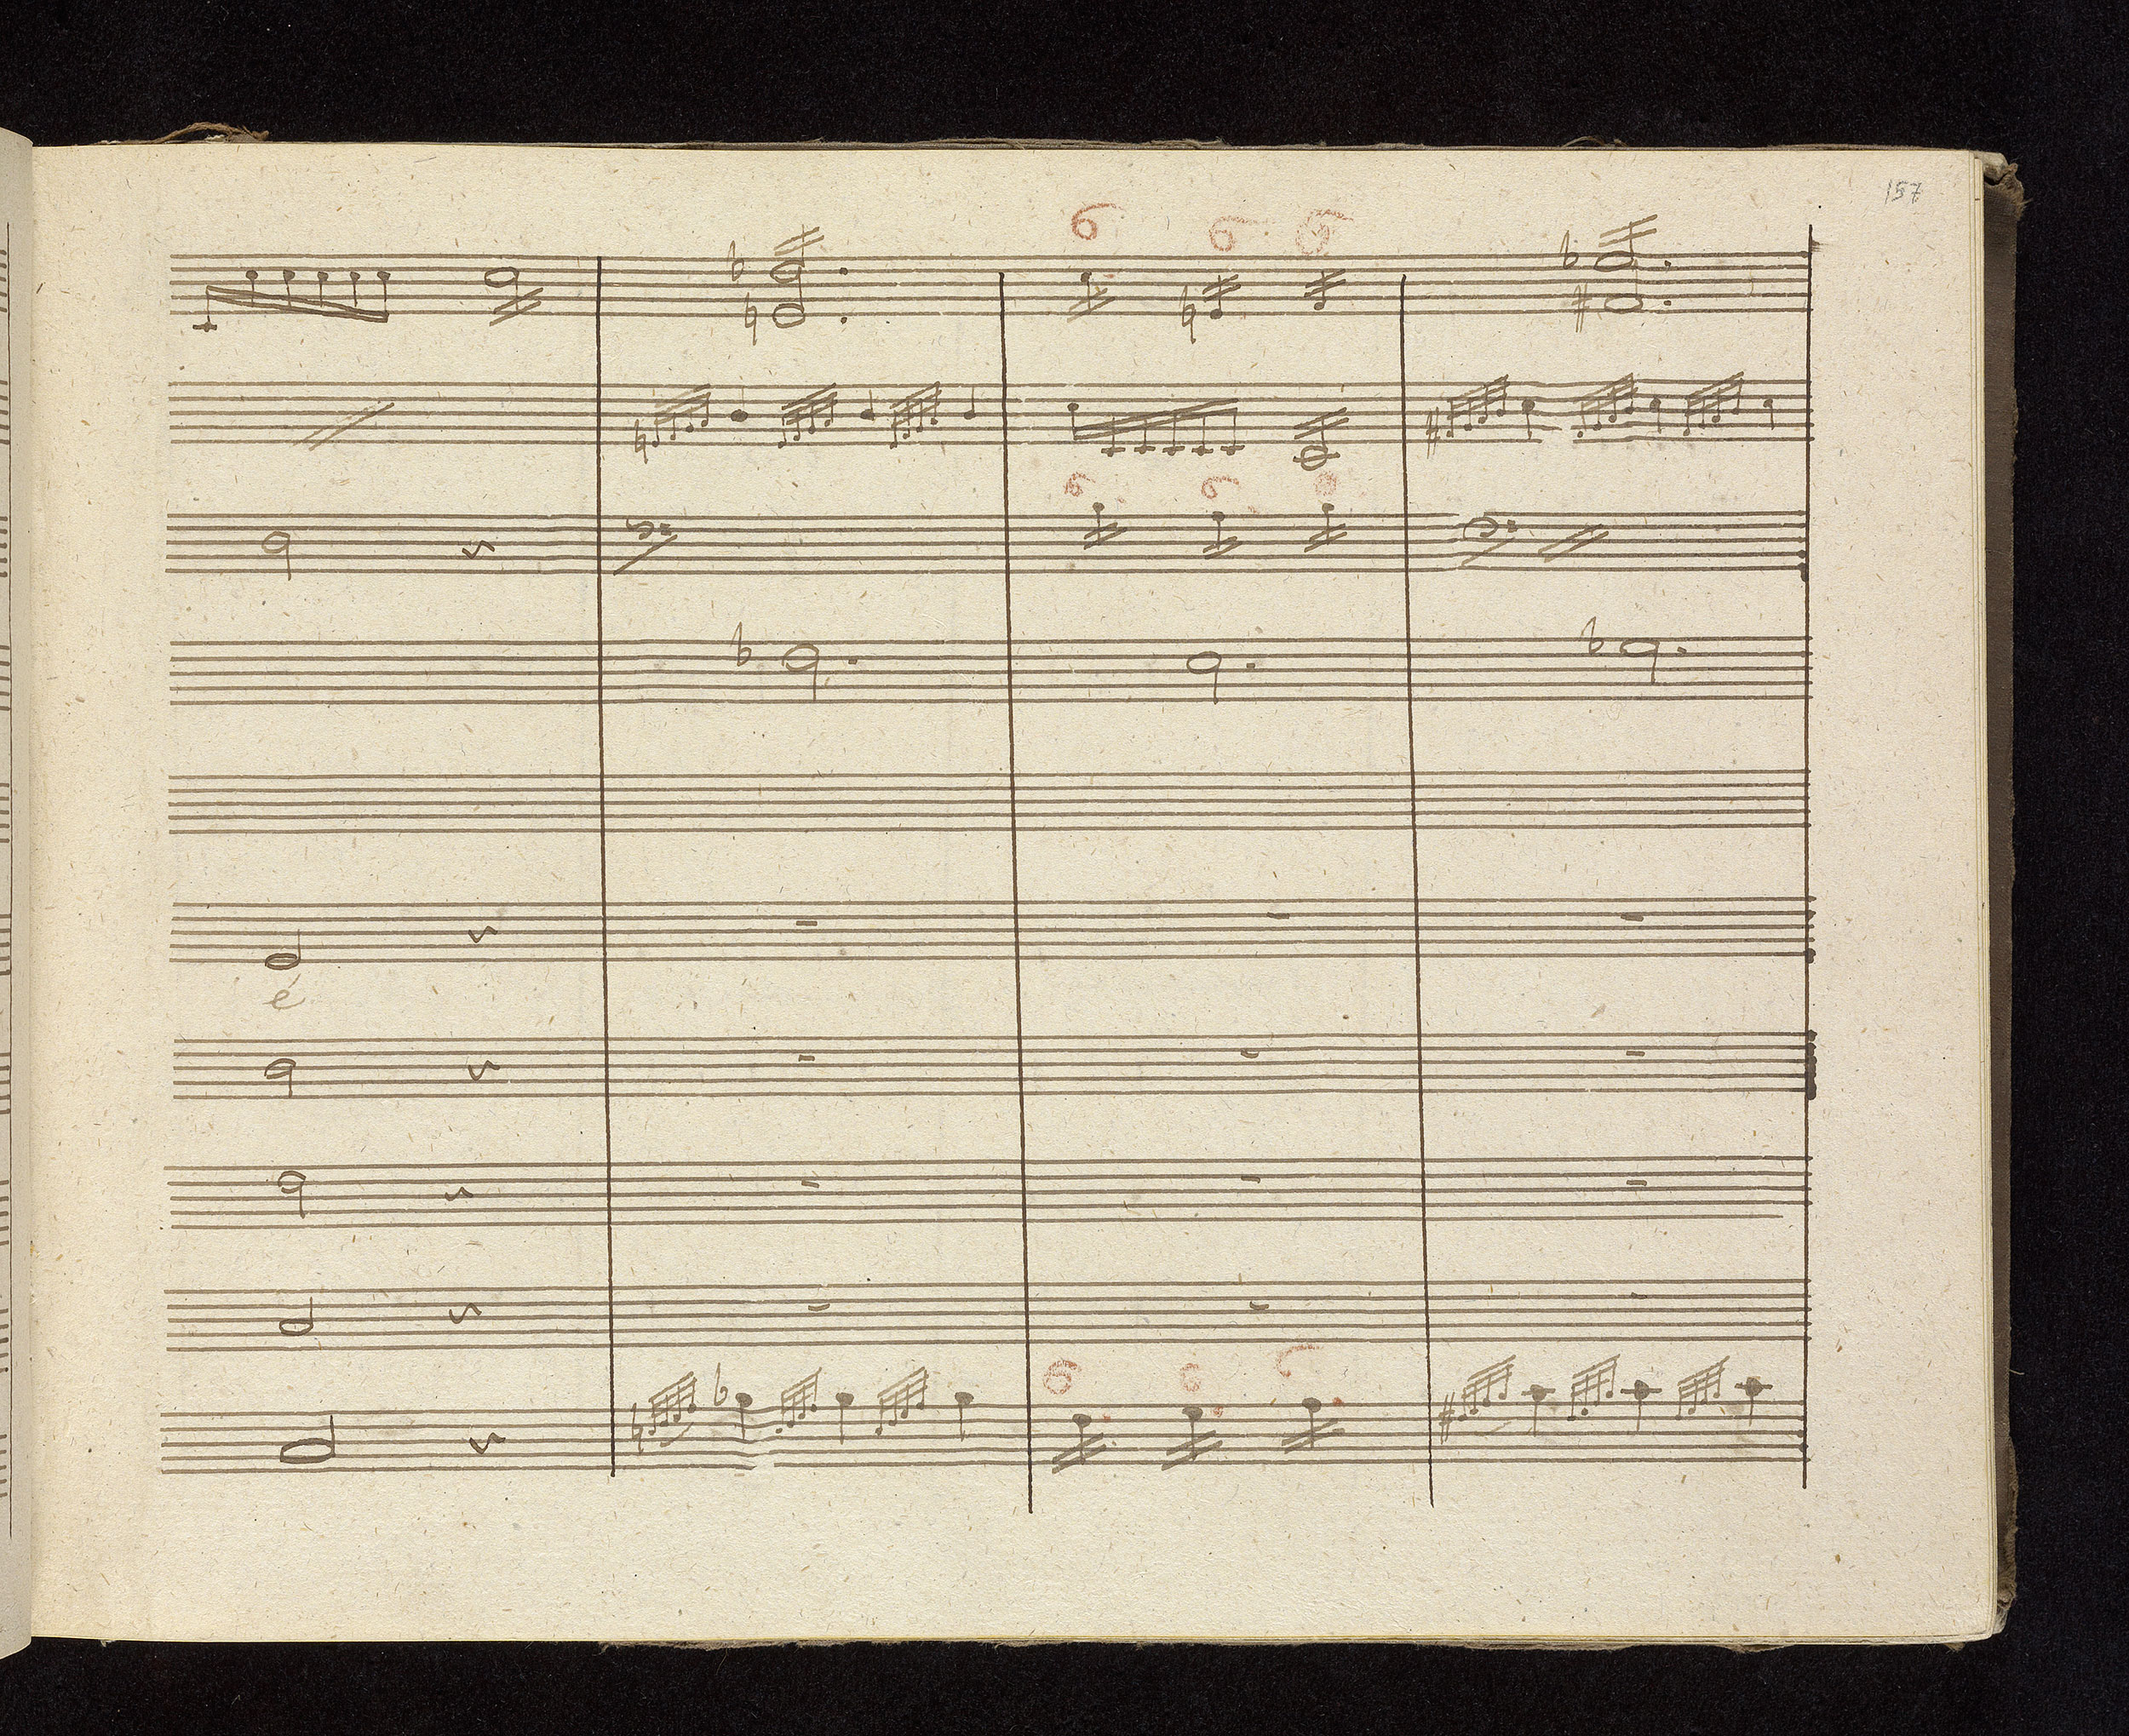 157
6 6 6
6 6 6
é
6 6